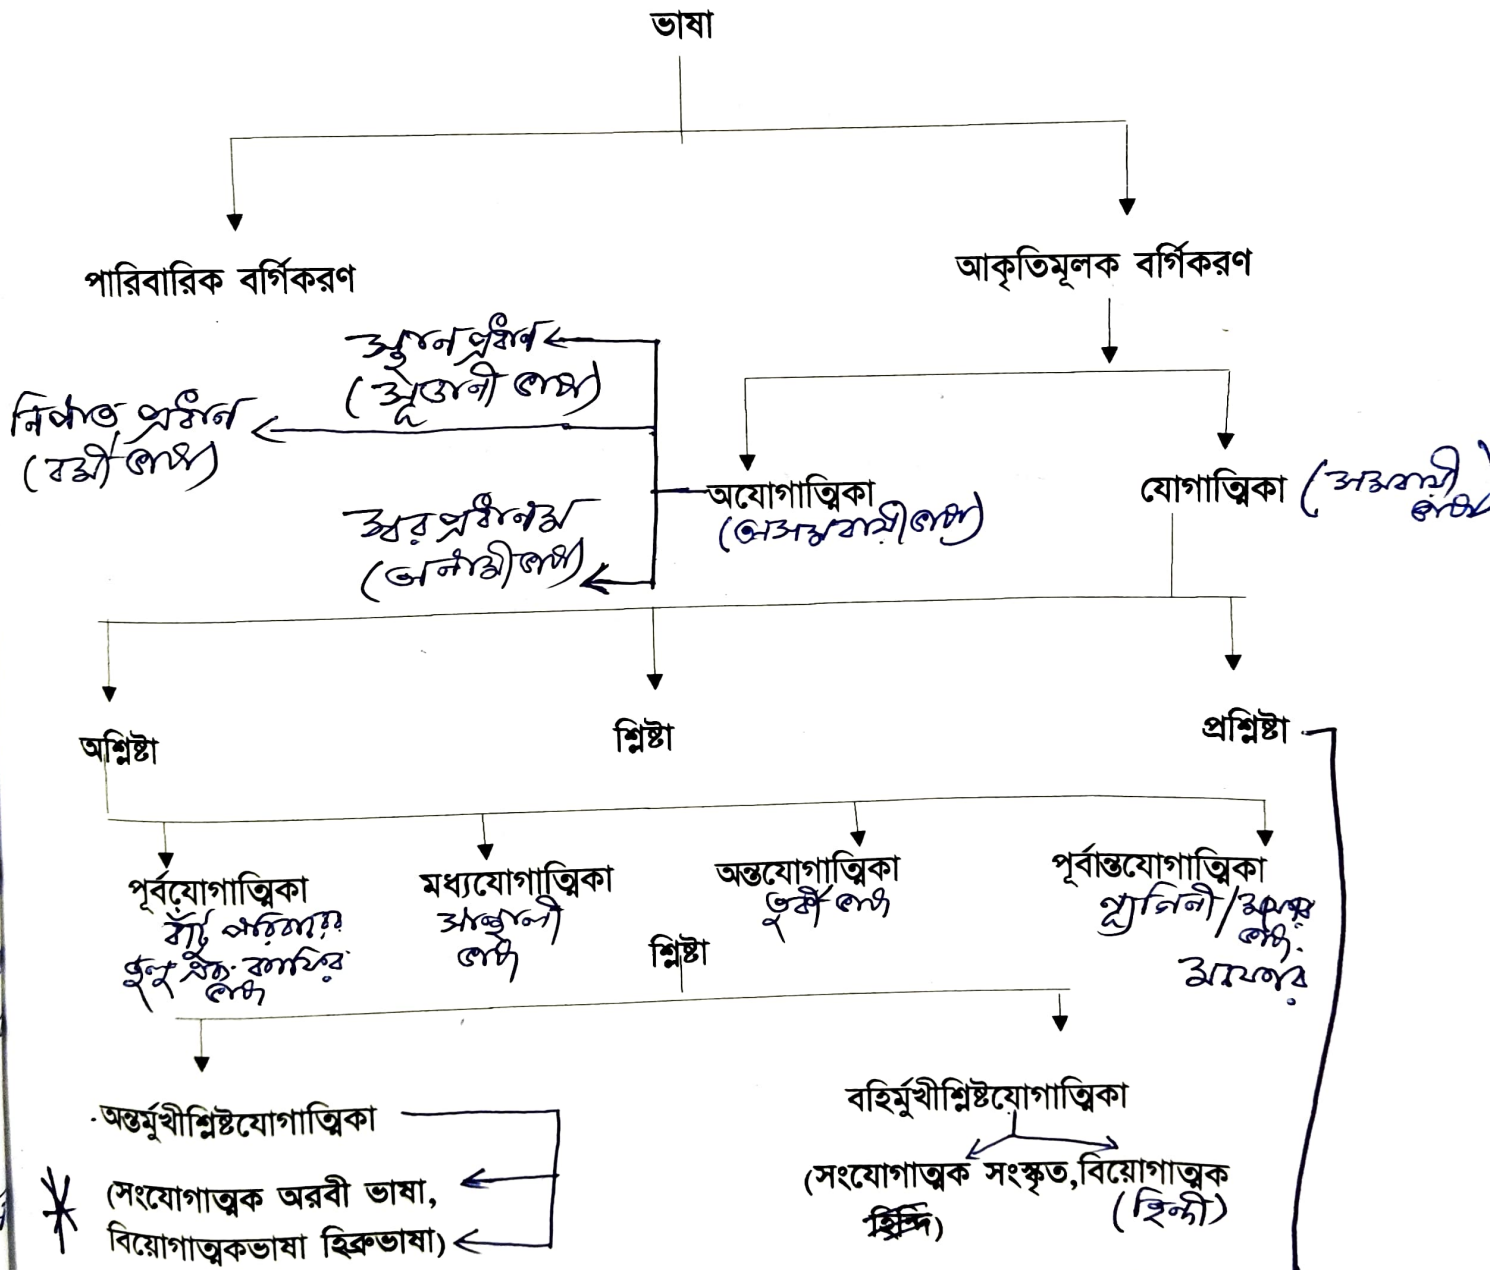 ভাষা
পারিবারিক বর্গিকরণ
আকৃতিমূলক বর্গিকরণ
স্থান প্রধান
(সূডানী ভাষা)
নিপাত প্রধান
(বর্মী ভাষা)
অযোগাত্মিকা
(অসমবায়ী ভাষা)
যোগাত্মিকা (সমবায়ী
ভাষা)
স্বর প্রধানম
(অনামী ভাষা)
অশ্লিষ্টা
শ্লিষ্টা
প্রশ্লিষ্টা
পূর্বযোগাত্মিকা
বাঁটু পরিবারের
কাফির
ভাষা
মধ্যযোগাত্মিকা
সান্থালী
ভাষা
অন্তযোগাত্মিকা
তুর্কী ভাষা
পূর্বান্তযোগাত্মিকা
ভাষা
শ্লিষ্টা
অন্তর্মুখীশ্লিষ্টযোগাত্মিকা
(সংযোগাত্মক অরবী ভাষা,
বিয়োগাত্মকভাষা হিব্রুভাষা)
বহির্মুখীশ্লিষ্টযোগাত্মিকা
(সংযোগাত্মক সংস্কৃত,বিয়োগাত্মক
হিন্দি)
(হিন্দী)